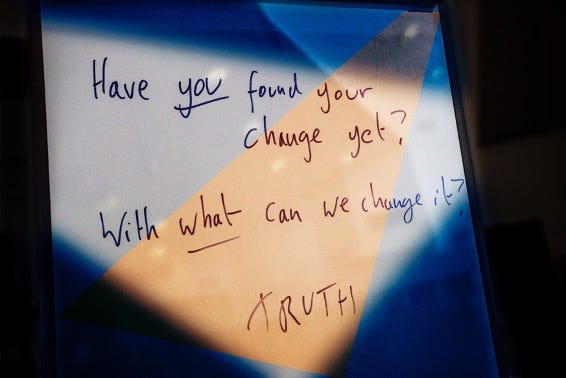 Have you found your
change yet?
With what can we change it?
TRUTH